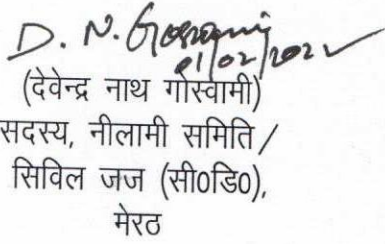 D. N. Goswami
01/02/2022
(देवेन्द्र नाथ गोस्वामी)
सदस्य, नीलामी समिति /
सिविल जज (सी0डि0),
मेरठ